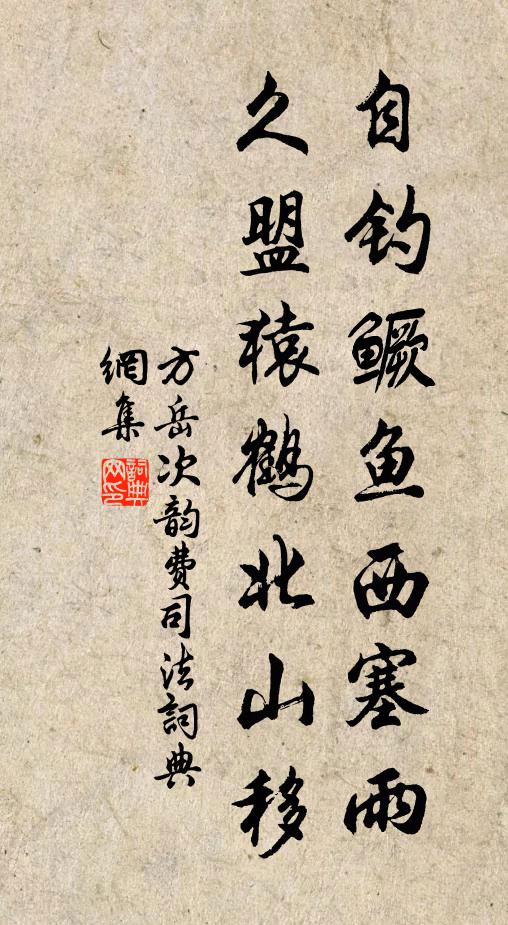 自钓鳜鱼西塞雨
久盟猿鹤北山移
方岳次韵费司法詞典
網集
詞典網印